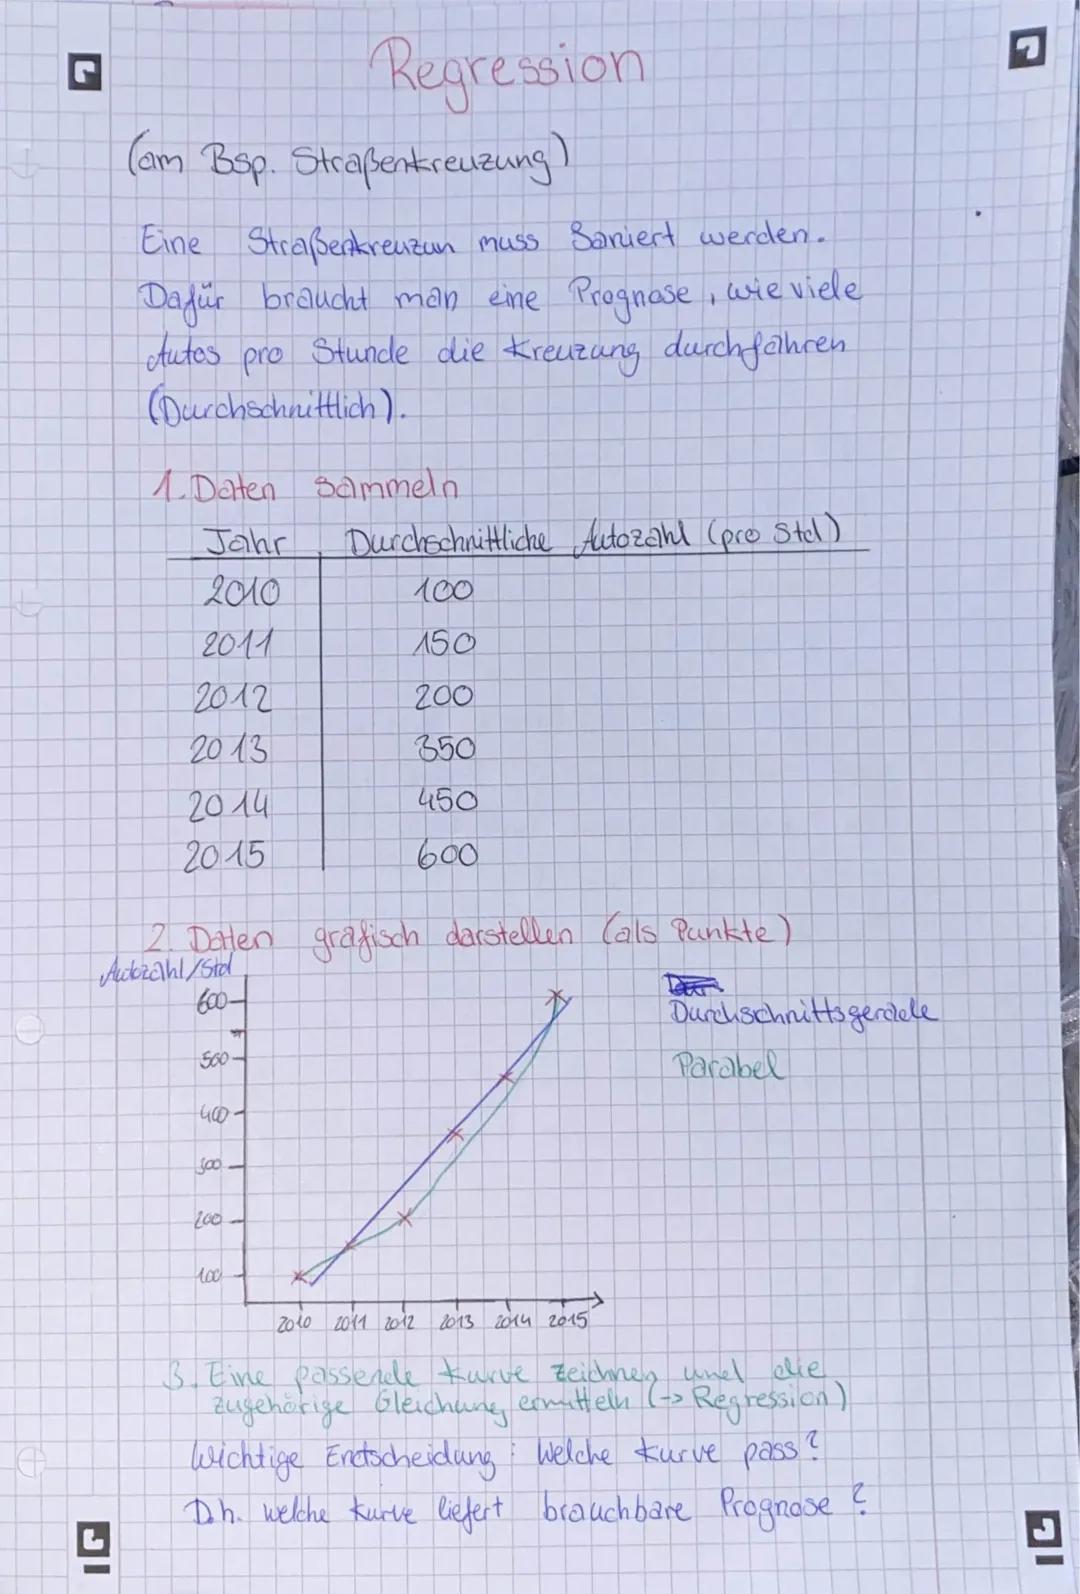 Regression
(am Bsp. Straßenkreuzung)
Eine Straßenkreuzun muss Saniert werden.
Dafür braucht man eine Prognose, wie viele
Autos pro Stunde die Kreuzung durchfahren
(Durchschnittlich).
1. Daten sammeln
Jahr Durchschnittliche Autozahl (pro Std)
2010 100
2011 150
2012 200
2013 350
2014 450
2015 600
2. Daten grafisch darstellen (als Punkte)
Autozahl/Std
600
500
400
300
200
100
2010 2011 2012 2013 2014 2015
Durchschnittsgerade
Parabel
3. Eine passende Kurve zeichnen und die
zugehörige Gleichung ermitteln (-> Regression)
Wichtige Entscheidung: Welche Kurve pass?
D.h. welche Kurve liefert brauchbare Prognose?